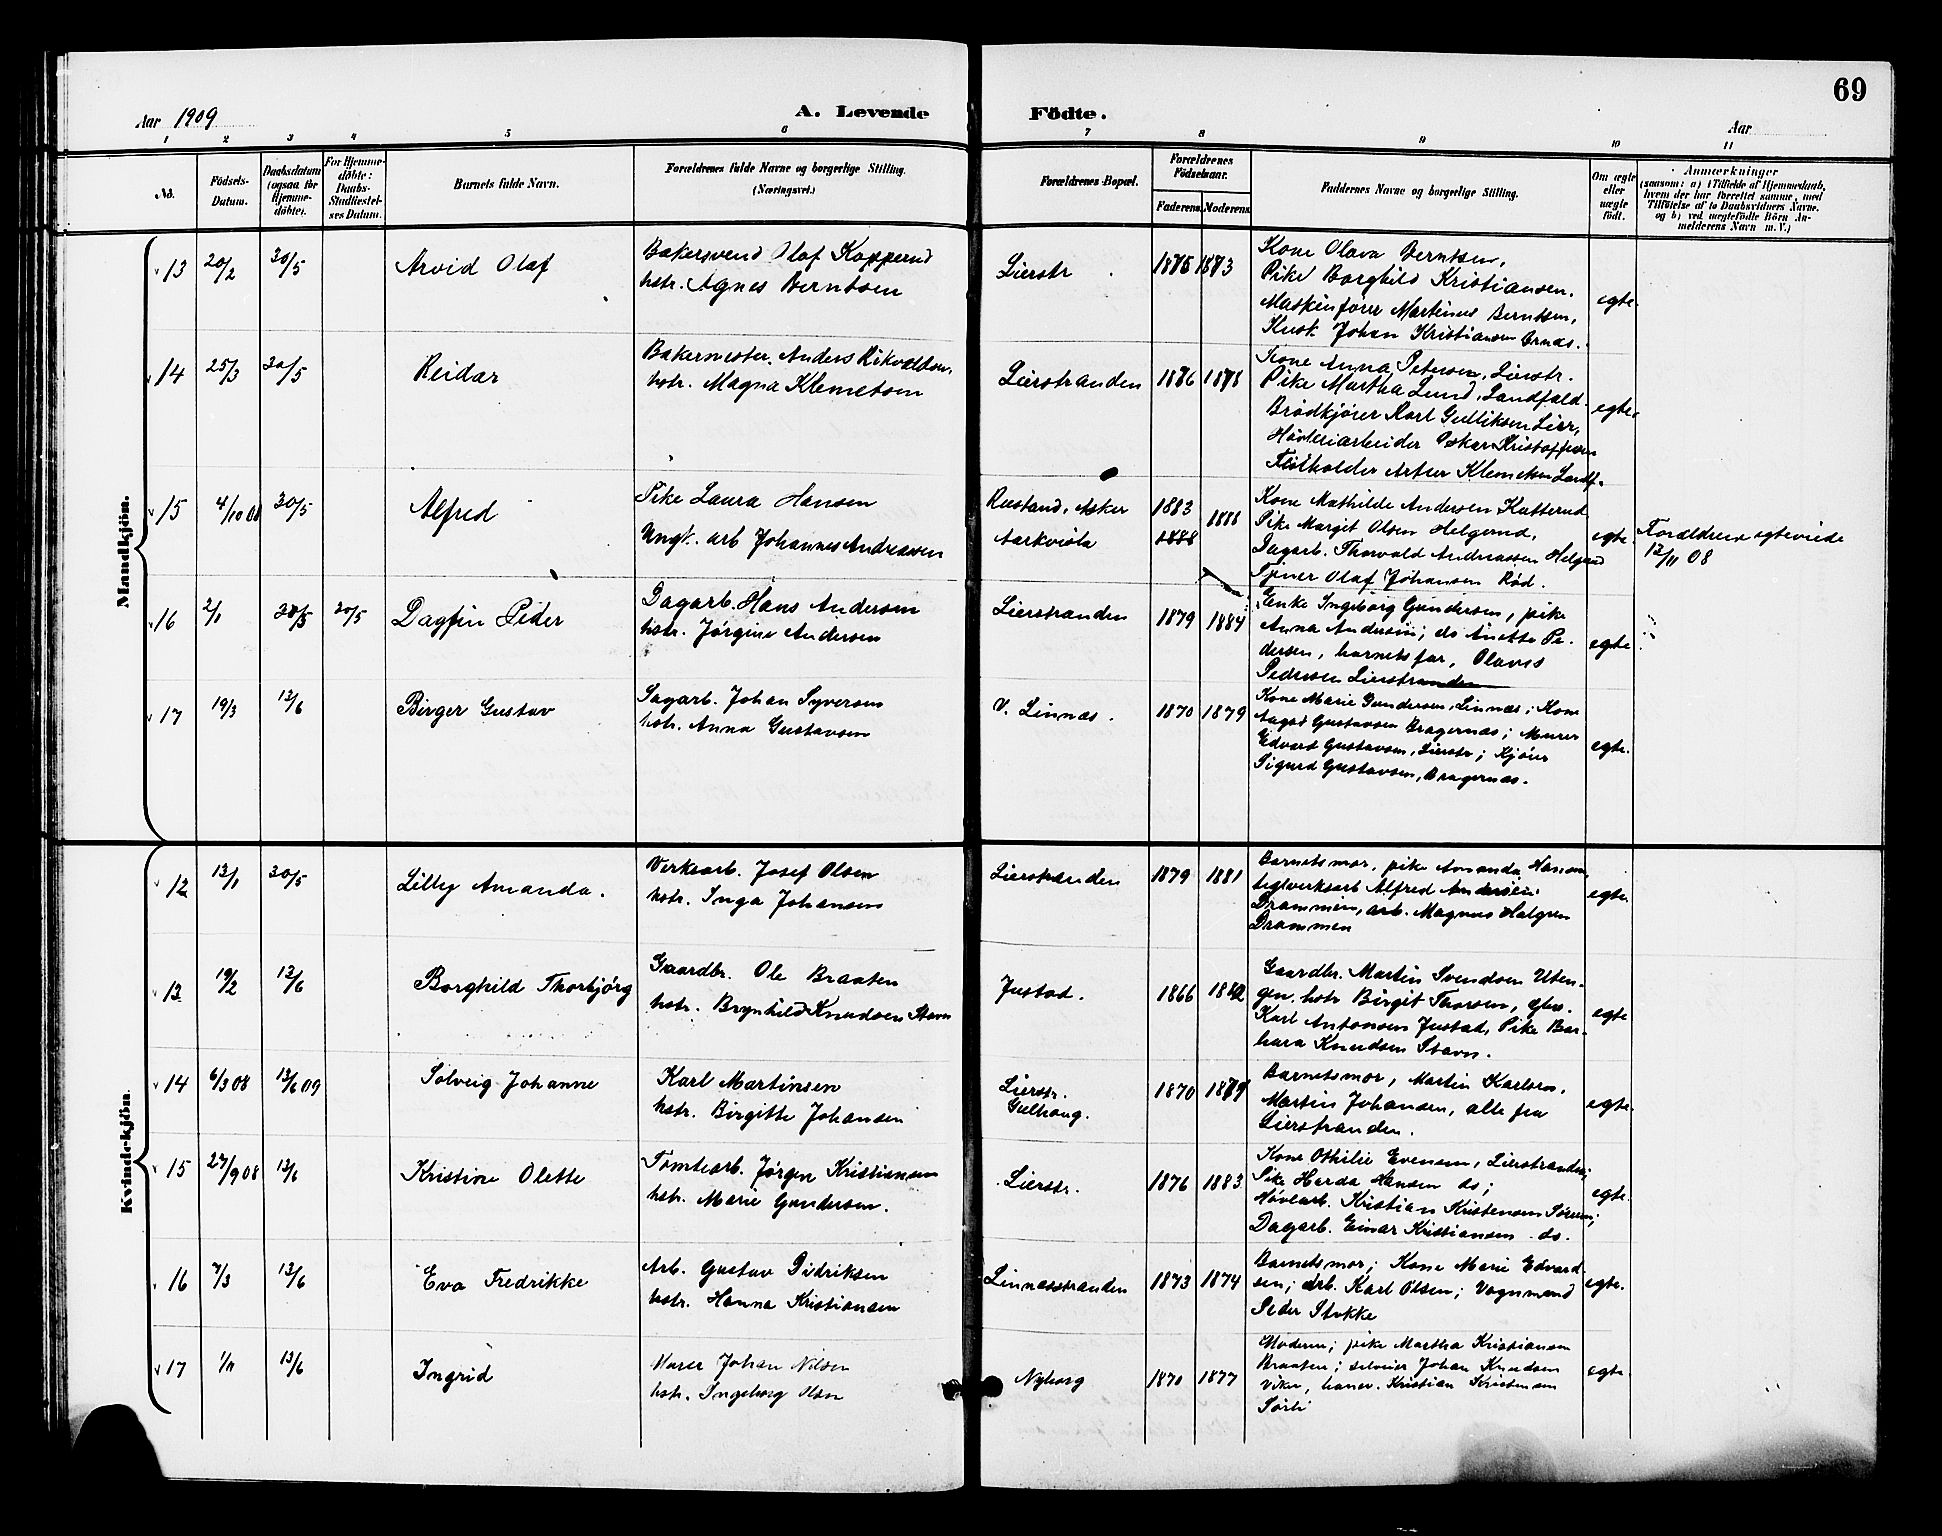 69
Aar 1909
A. Levende Födte.
Aar
1 2 3 4 5 6 7 8 9 10 11
No.
Födsels-Datum.
Daabsdatum (ogsaa for Hjemmedöbte).
For Hjemmedöbte: Daabs-Stadfæstelses Datum.
Barnets fulde Navn.
Forældrenes fulde Navne og borgerlige Stilling. (Næringsvei.)
Forældrenes Bopæl.
Forældrenes Födselsaar.
Faderens. Moderens.
Faddernes Navne og borgerlige Stilling.
Om ægte eller uægte födt.
Anmærkninger
(saasom: a) i Tilfælde af Hjemmedaab, hvem der har forrettet samme, med Tilföielse af to Daabsvidners Navne. og b) ved uægtefödte Börn Anmelderens Navn m. V.)
Mandkjön.
13 20/2 30/5 Arvid Olaf
Bakersvend Olaf Kopperud
hstr. Agnes Berntsen
Lierstr. 1873
Kone Olava Berntsen,
Pike Borghild Kristiansen.
Maskinfører Martinus Berntsen,
Kusk Johan Kristiansen
egte.
14 25/3 30/5 Reidar
Bakermester Anders Rikvoldsen,
hstr. Magna Klemetsen
Lierstranden 1876 1878
Kone Anna Petersen, Lierstr.
Pike Martha Lund, Landfald
Brødkjører Karl Gulliksen Lier,
Høvleriarbeider Oskar Kristoffersen
Klemetsen Landf.
egte.
15 4/10 08 30/5 Alfred
Pike Laura Hansen
Ungk. arb Johannes Andreassen
Rustand, Asker
1883 1888
1888
Kone Mathilde Andersen Katterud
Pike Margit Olsen Helgerud,
Dagarb. Thorvald Andreassen Helgerud
Tjener Olaf Johansen Rød.
egte.
Forældrene egteviede
12/11 08
16 2/1 30/5 30/5 Dagfin Peder
Dagarb. Hans Andersen
hstr. Jørgine Andersen
Lierstranden 1879 1884
Enke Ingeborg Gundersen, pike
Anna Andersen; do Anette Pe-
dersen, barnets far, Olaves
Pedersen Lierstranden
egte
17 19/3 13/6 Birger Gustav
Sagarb. Johan Syversen
hstr. Anna Gustavsen
V. Linnæs. 1870 1879
Kone Marie Gundersen, Linnæs; Kone
Aagot Gustavsen Bragernæs; Murer
Edvard Gustavsen, Lierstr; Kjører
Sigurd Gustavsen, Bragernæs.
egte.
Kvindekjön.
12 13/1 30/5 Lilly Amanda.
Verksarb. Josef Olsen
hstr. Inga Johansen
Lierstranden 1879 1881
Barnets mor, pike Amanda Hansen,
teglverksarb Alfred Andersen
Drammen, arb. Magnus Halgren
Drammen
egte.
13 19/2 13/6 Borghild Thorbjørg
Gaardbr. Ole Braaten
hstr. Brynhild Knudsen Stavn
Justad. 1866
Gaardbr. Martin Svendsen Uten-
gen. hstr Birgit Thorsen,
Karl Antonsen Justad, Pike Bar-
bara Knudsen Stavn.
egte
14 6/3 08 13/6 09 Solveig Johanne
Karl Martinsen
hstr. Birgitte Johansen
Lierstr.
Gulhaug. 1870 1879
Barnets mor, Martin Karlsen,
Martin Johansen, alle fra
Lierstranden.
egte.
15 27/9 08 13/6 Kristine Olette
Tomtearb. Jørgen Kristiansen
hstr. Marie Gundersen.
Lierstr. 1876 1883
Kone Othilie Evensen, Lierstranden;
Pike Harda Hansen do;
Høvlearb. Kristian Kristensen
Dagarb. Einar Kristiansen do.
egte.
16 7/3 13/6 Eva Fredrikke
Arb. Gustav Didriksen
hstr. Hanna Kristiansen
Linnæsstranden 1873 1874
Barnets mor; Kone Marie Edvard-
sen; arb. Karl Olsen; Vognmand
Peder Stokke
egte.
17 13/6 Ingrid
Murer Johan Nilsen
hstr. Ingeborg Olsen
Nyborg 1870 1877
Moderen; pike Martha Kristiansen
Braaten; Johan Knudsen
Viker, Kristian Kristensen
Sørli
egte.